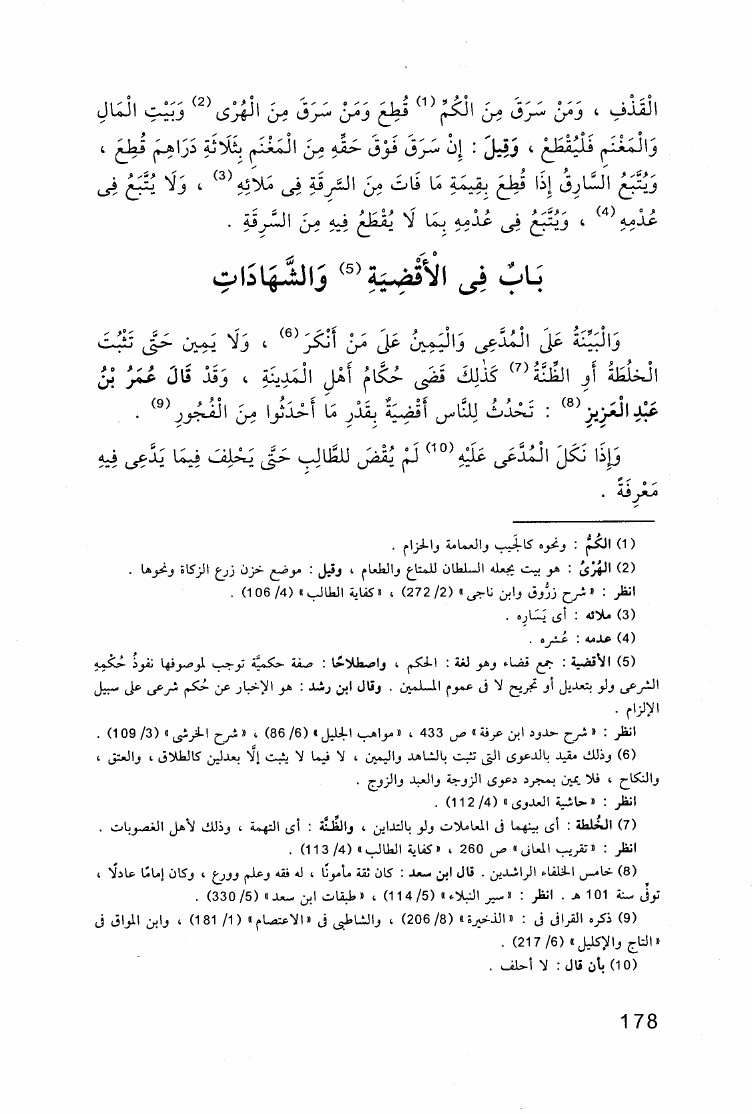 الْقَذْفِ ، وَمَنْ سَرَقَ مِنَ الْكُمِّ (1) قُطِعَ وَمَنْ سَرَقَ مِنَ الْهُرْى (2) وَبَيْتِ الْمَالِ
وَالْمَغْنَمِ فَلْيُقْطَعْ ، وَقِيلَ : إِنْ سَرَقَ فَوْقَ حَقِّهِ مِنَ الْمَغْنَمِ بِثَلَاثَةِ دَرَاهِمَ قُطِعَ ،
وَيُتَّبَعُ السَّارِقُ إِذَا قُطِعَ بِقِيمَةِ مَا فَاتَ مِنَ السَّرِقَةِ فِى مَلَائِهِ (3) ، وَلَا يُتَّبَعُ فِى
عُدْمِهِ (4) ، وَيُتَّبَعُ فِى عُدْمِهِ بِمَا لَا يُقْطَعُ فِيهِ مِنَ السَّرِقَةِ .
بَابٌ فِى الْأَقْضِيَةِ (5) وَالشَّهَادَاتِ
وَالْبَيِّنَةُ عَلَى الْمُدَّعِى وَالْيَمِينُ عَلَى مَنْ أَنْكَرَ (6) ، وَلَا يَمِين حَتَّى تَثْبُتَ
الْخلْطَةُ أَوِ الظِّنَّةُ (7) كَذٰلِكَ قَضَى حُكَّامُ أَهْلِ الْمَدِينَةِ ، وَقَدْ قَالَ عُمَرُ بْنُ
عَبْدِ الْعَزِيزِ (8) : تَحْدُثُ لِلنَّاسِ أَقْضِيَةٌ بِقَدْرِ مَا أَحْدَثُوا مِنَ الْفُجُورِ (9) .
وَإِذَا نَكَلَ الْمُدَّعَى عَلَيْهِ (10) لَمْ يُقْضَ للطَّالِبِ حَتَّى يَحْلِفَ فِيمَا يَدَّعِى فِيهِ
مَعْرِفَةً .
(1) الكُمُّ : ونحوه كالجَيب والعمامة والحزام .
(2) الهُرْىُ : هو بيت يجعله السلطان للمتاع والطعام ، وقيل : موضع خزن زرع الزكاة ونحوها .
انظر : « شرح زرُّوق وابن ناجى » (2/ 272) ، « كفاية الطالب » (4/ 106) .
(3) ملائه : أى يَسَارِه .
(4) عدمه : عُسْرِه .
(5) الأقضية : جمع قضاء وهو لغة : الحكم ، واصطلاحًا : صفة حكميَّة توجب لموصوفها نفوذُ حُكْمِهِ
الشرعى ولو بتعديل أو تجريح لا فى عموم المسلمين . وقال ابن رشد : هو الإخبار عن حُكم شرعى على سبيل
الإلزام .
انظر : « شرح حدود ابن عرفة » ص 433 ، « مواهب الجليل » (6/ 86) ، « شرح الخرشى » (3/ 109) .
(6) وذلك مقيد بالدعوى التى تثبت بالشاهد واليمين ، لا فيما لا يثبت إلَّا بعدلين كالطلاق ، والعتق ،
والنكاح ، فلا يمين بمجرد دعوى الزوجة والعبد والزوج .
انظر : « حاشية العدوى » (4/ 112) .
(7) الخُلطة : أى بينهما فى المعاملات ولو بالتداين ، والظِّنَّة : أى التهمة ، وذلك لأهل الغصوبات .
انظر : « تقريب المعانى » ص 260 ، « كفاية الطالب » (4/ 113) .
(8) خامس الخلفاء الراشدين . قال ابن سعد : كان ثقة مأمونًا ، له فقه وعلم وورع ، وكان إمامًا عادلًا ،
توفِّى سنة 101 هـ . انظر : « سير النبلاء » (5/ 114) ، « طبقات ابن سعد » (5/ 330) .
(9) ذكره القرافى فى : « الذخيرة » (8/ 206) ، والشاطبى فى « الاعتصام » (1/ 181) ، وابن المواق فى
« التاج والإكليل » (6/ 217) .
(10) بأن قال : لا أحلف .
178